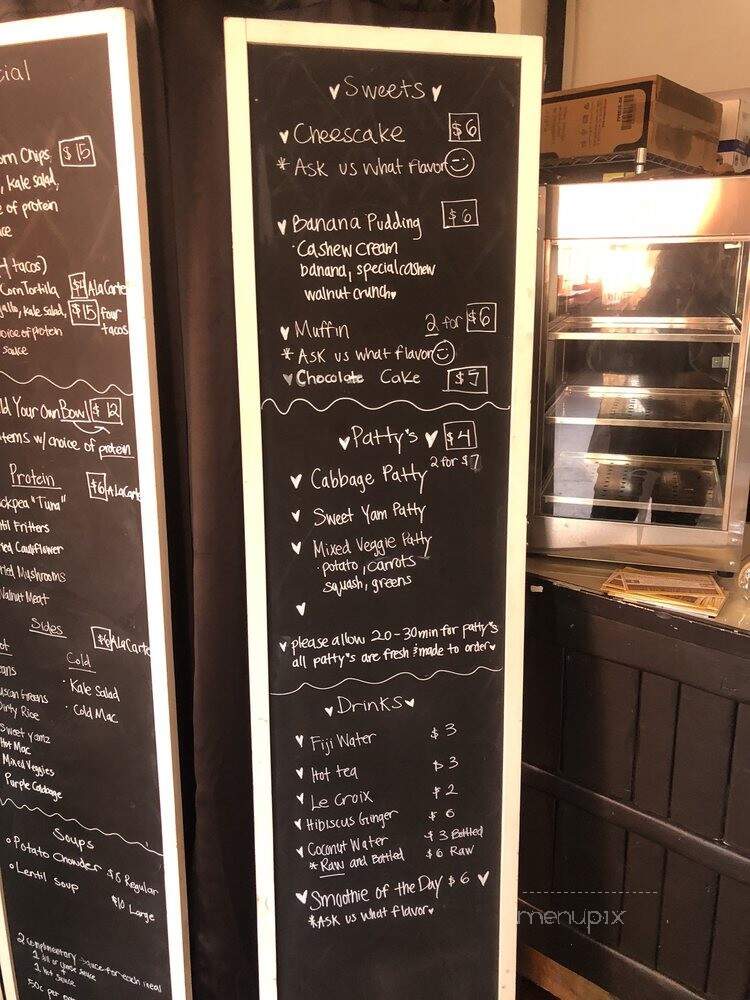 cial
orn Chips $15
, kale salad,
e of protein
uce
4 tacos)
Corn Tortilla $4 AlaCarte
gallo, kale salad, $15 four
hoice of protein tacos
sauce
ld Your Own Bowl $12
tems w/ choice of protein
Protein $6 AlaCarte
ickpea "Tuna"
ntil Fritters
ried Cauliflower
ried Mushrooms
Walnut Meat
Sides $6 AlaCarte
ot Cold
eans · Kale Salad
uscan Greens · Cold Mac
Dirty Rice
Sweet Yamz
Hot Mac
Mixed Veggies
Purple Cabbage
Soups
Potato Chowder $6 Regular
Lentil Soup $10 Large
2 complimentary sauce for each meal
1 Hot Sauce
50¢ per
♥ Sweets ♥
♥ Cheescake $6
* Ask us what flavor ☺
♥ Banana Pudding $6
· Cashew Cream
banana, special cashew
walnut crunch ♥
♥ Muffin 2 for $6
* Ask us what flavor ☺
♥ Chocolate Cake $7
♥ Patty's ♥ $4
♥ Cabbage Patty 2 for $7
♥ Sweet Yam Patty
♥ Mixed Veggie Patty
· potato, carrots
squash, greens
♥
♥ please allow 20-30min for patty's
all patty's are fresh & made to order ♥
♥ Drinks ♥
♥ Fiji Water $3
♥ Hot tea $3
♥ Le Croix $2
♥ Hibiscus Ginger $6
♥ Coconut Water $3 Bottled
* Raw and Bottled $6 Raw
♥ Smoothie of the Day $6 ♥
* Ask us what flavor ♥
menupix